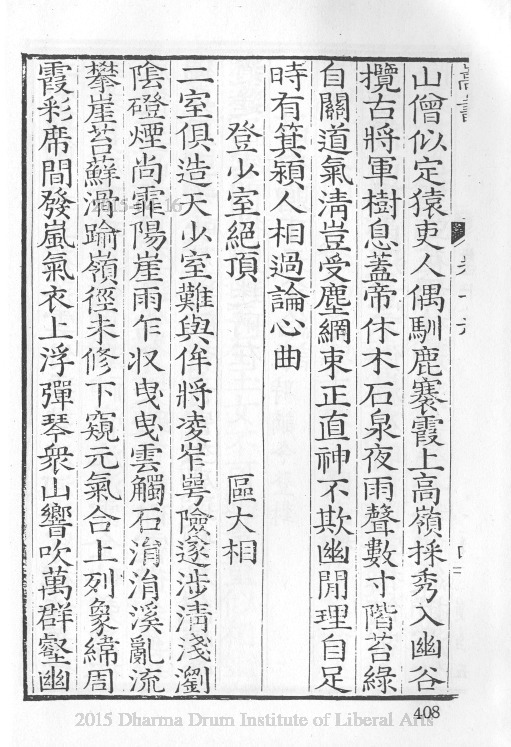 嵩書
山僧似定猿吏人偶馴鹿褰霞上高嶺採秀入幽谷
攬古將軍樹息蓋帝休木石泉夜雨聲數寸階苔綠
自關道氣清豈受塵網束正直神不欺幽閒理自足
時有箕潁人相過論心曲
登少室絕頂 區大相
二室俱造天少室難與侔將凌岝崿險遂涉清淺瀏
陰磴煙尚霏陽崖雨乍収曳曳雲觸石涓涓溪亂流
攀崖苔蘚滑踰嶺徑未修下窺元氣合上列象緯周
霞彩席間發嵐氣衣上浮彈琴衆山響吹萬群壑幽
408
2015 Dharma Drum Institute of Liberal Arts